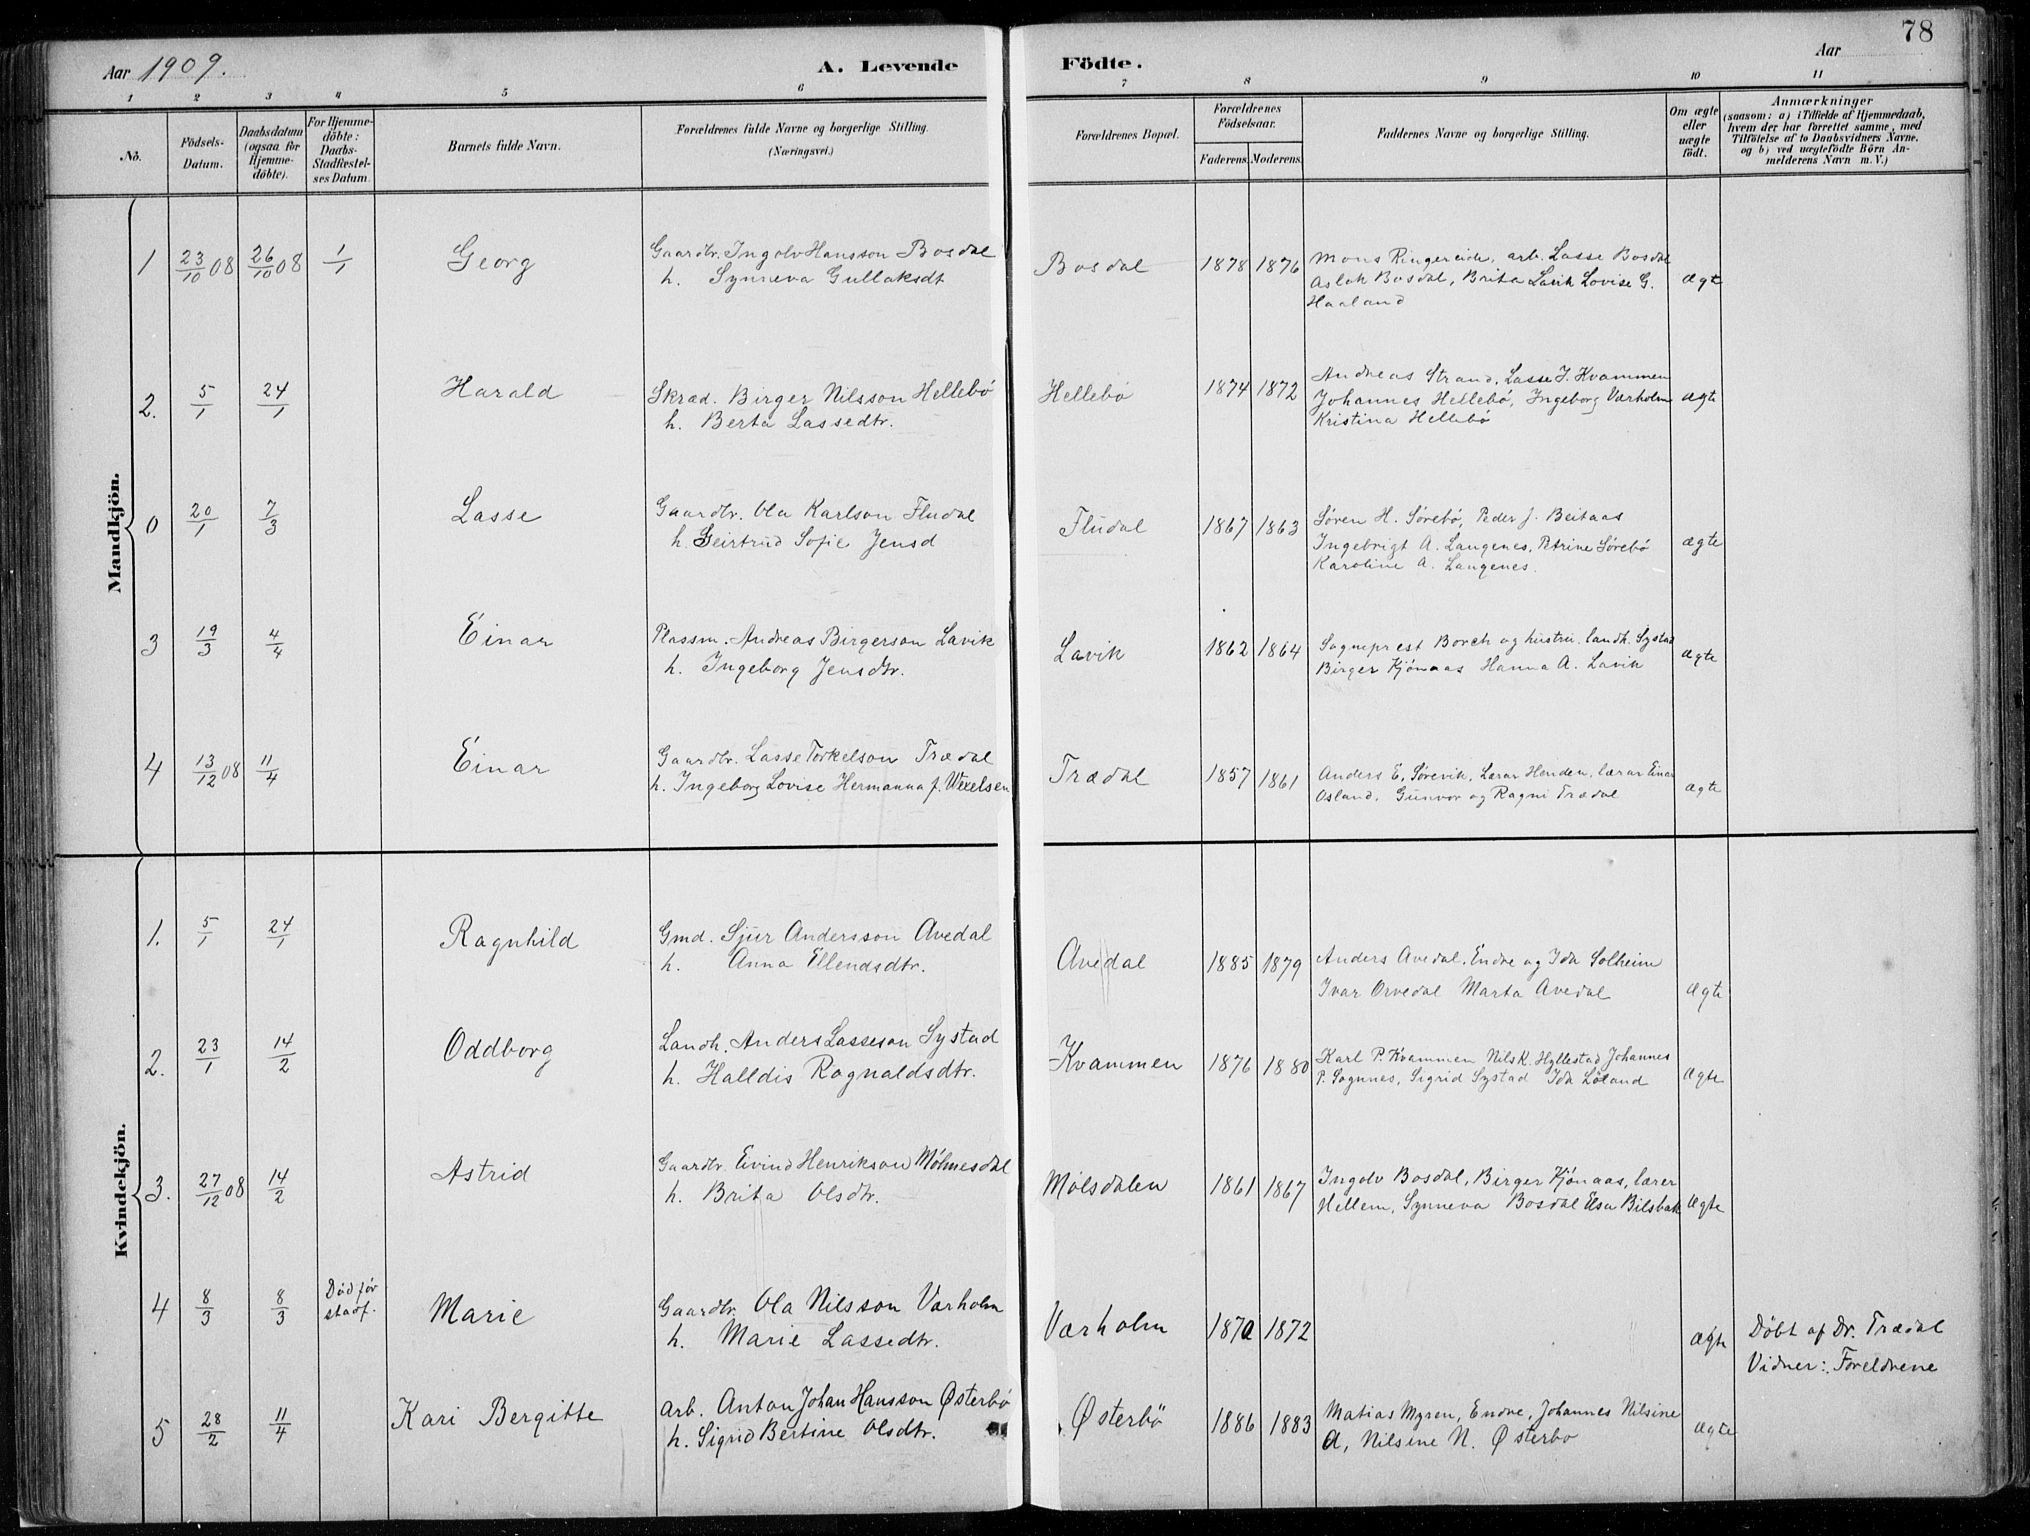 78
Aar 1909. A. Levende Födte. Aar
1 2 3 4 5 6 7 8 9 10 11
No. Födsels-Datum. Daabsdatum (ogsaa for Hjemme-döbte). For Hjemme-döbte: Daabs-Stadfæstel-ses Datum. Barnets fulde Navn. Forældrenes fulde Navne og borgerlige Stilling. (Næringsvei.) Forældrenes Bopæl. Forældrenes Födselsaar. Faderens. Moderens. Faddernes Navne og borgerlige Stilling. Om ægte eller uægte födt. Anmærkninger (saasom: a) i Tilfælde af Hjemmedaab, hvem der har forrettet samme, med Tilföielse af to Daabsvidners Navne, og b) ved uægtefödte Börn An-melderens Navn m. V.)
Mandkjön.
1 23/10 08 26/10 08 1/1 Georg Gaardbr. Ingolv Hansson Bosdal Bosdal 1878 1876 Mons Ringereide, arb. Lasse Bosdal
h. Synneva Gullaksdt Aslak Bosdal, Brita Lavik Lovise G. ægte
Haaland
2. 5/1 24/1 Harald Skræd. Birger Nilsson Hellebö Hellebö 1874 1872 Andreas Strand, Lasse J. Kvammen
h. Berta Lassedtr. Johannes Hellebö, Ingeborg Værholm ægte
Kristina Hellebö
0 20/1 7/3 Lasse Gaardbr. Ola Karlson Fludal Fludal 1867 1863 Søren H. Sørebø, Peder J. Beitaas
h. Geirtrud Sofie Jensd Ingebrigt A. Langenes, Petrine Sørebø ægte
Karoline A. Langenes.
3 19/3 4/4 Einar Plassm. Andreas Birgerson Lavik Lavik 1862 1864 Sogneprest Borch og hustru. landh. Systad
h. Ingeborg Jensdtr. Birger Kjønaas Hanna A. Lavik ægte
4 13/12 08 11/4 Einar Gaardbr. Lasse Torkelson Trædal Trædal 1857 1861 Anders E. Sørevik, Lærar Henden, lærar Einar
h. Ingeborg Lovise Hermanna f. Wexelsen Osland, Gunvor og Ragni Trædal ægte
Kvindekjön.
1. 5/1 24/1 Ragnhild Gmd. Sjur Andersson Avedal Avedal 1885 1879 Anders Avedal, Endre og Ida Solheim
h. Anna Ellendsdtr. Ivar Orvedal Marta Avedal ægte
2. 23/1 14/2 Oddborg Landh. Anders Lasseson Systad Kvammen 1876 1880 Karl P. Kvammen Nils K. Hyllestad Johannes
h. Halldis Ragnaldsdtr. P. Sognnes, Sigrid Systad Ida Løland ægte
3. 27/12 08 14/2 Astrid Gaardbr. Eivind Henrikson Mølmesdal Mølsdalen 1861 1867 Ingolv Bosdal, Birger Kjønaas, lærer
h. Brita Olsdtr. Hellem, Synneva Bosdal Elsa Bilsbak ægte
4 8/3 8/3 Død før stadf. Marie Gaardbr. Ola Nilsson Værholm Værholm 1870 1872 ægte Döbt af Dr. Trædal
h. Marie Lassedtr. Vidner: Foreldrene
5 28/2 11/4 Kari Bergitte Arb. Anton Johan Hansson Østerbö Østerbö 1886 1883 Matias Myren, Endre, Johannes Nilsine
h. Sigrid Bertine Olsdtr. A, Nilsine N. Østerbø ægte